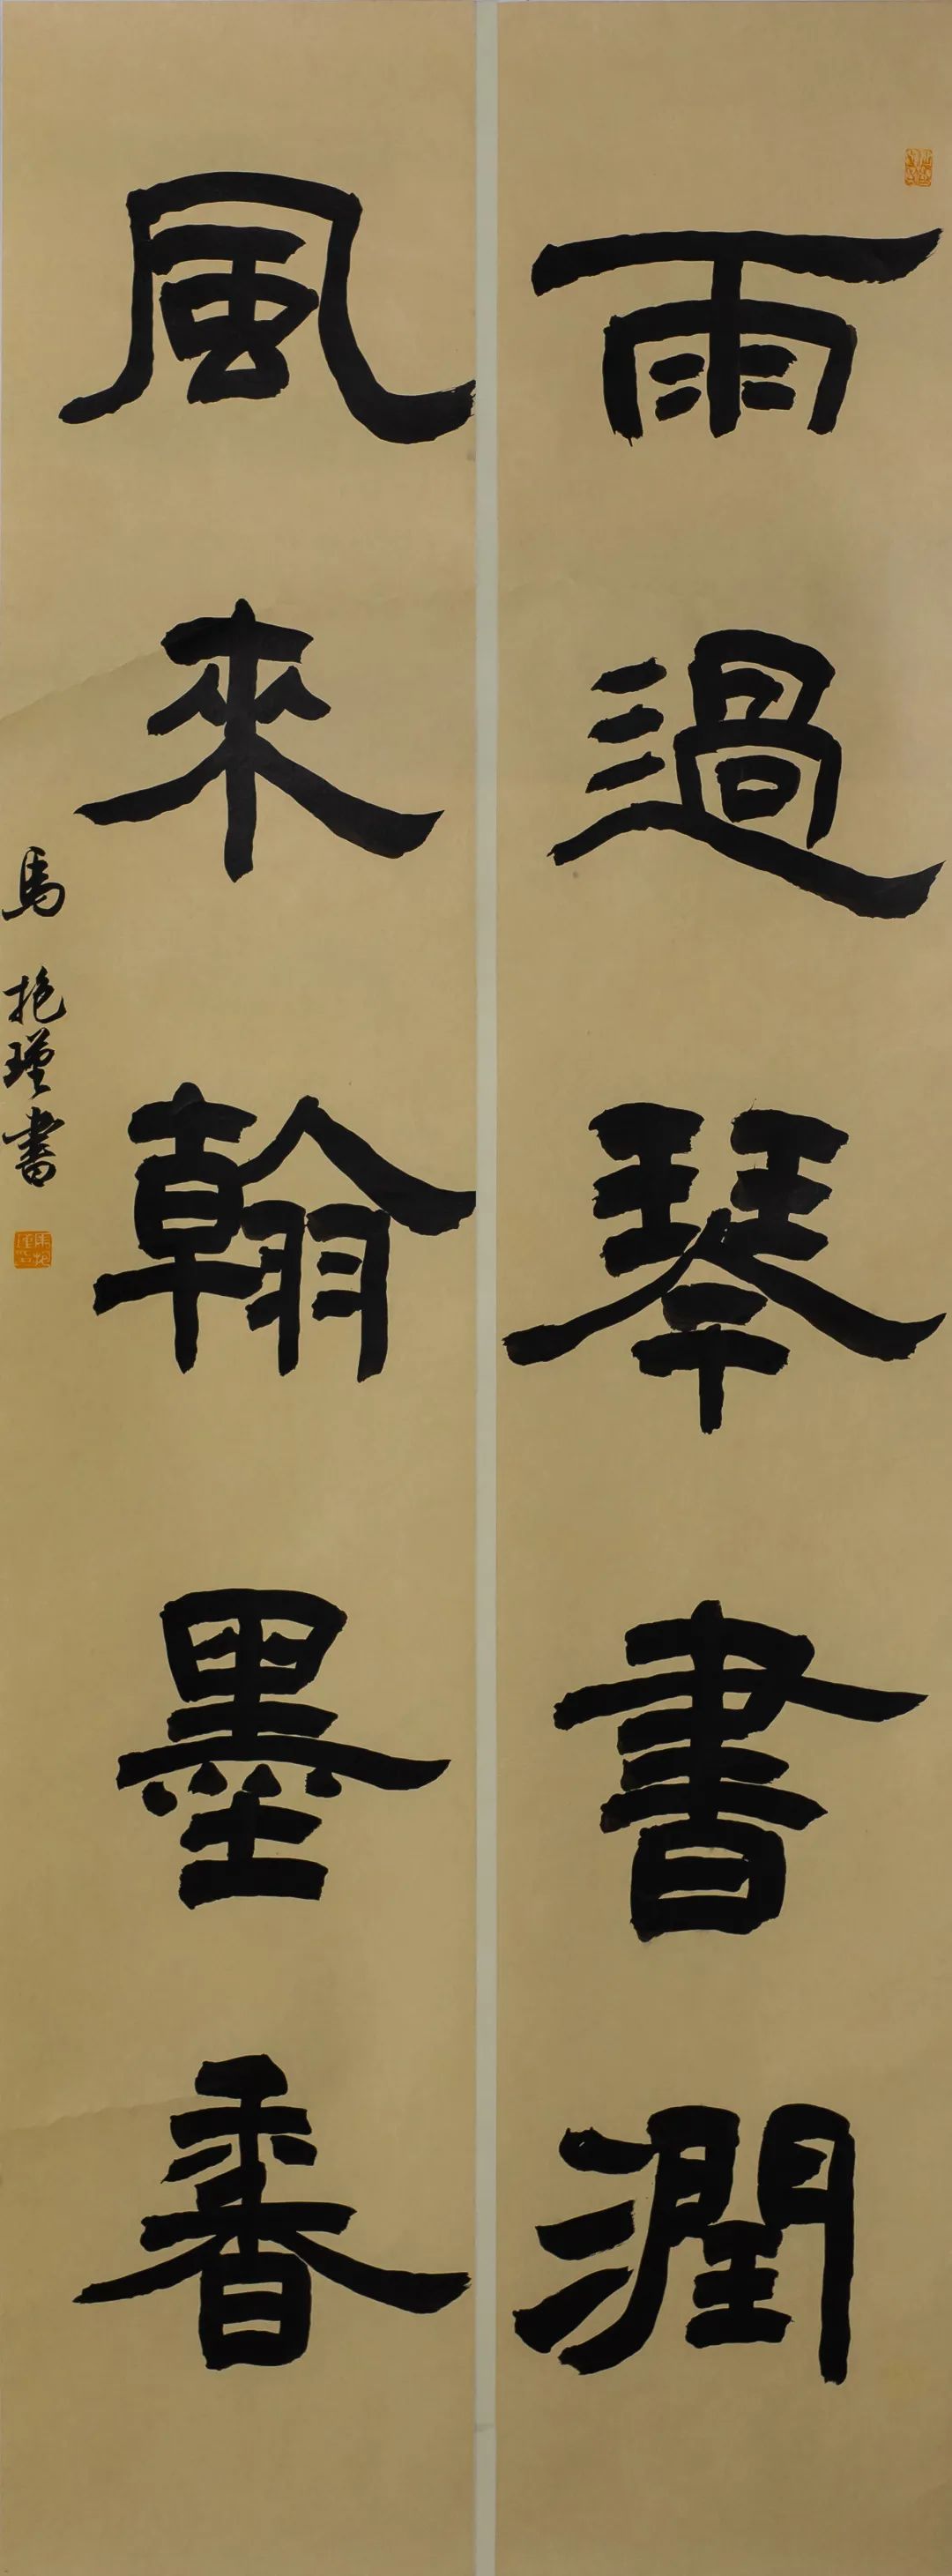 雨過琴書潤
風來翰墨香
馬抱瑾書